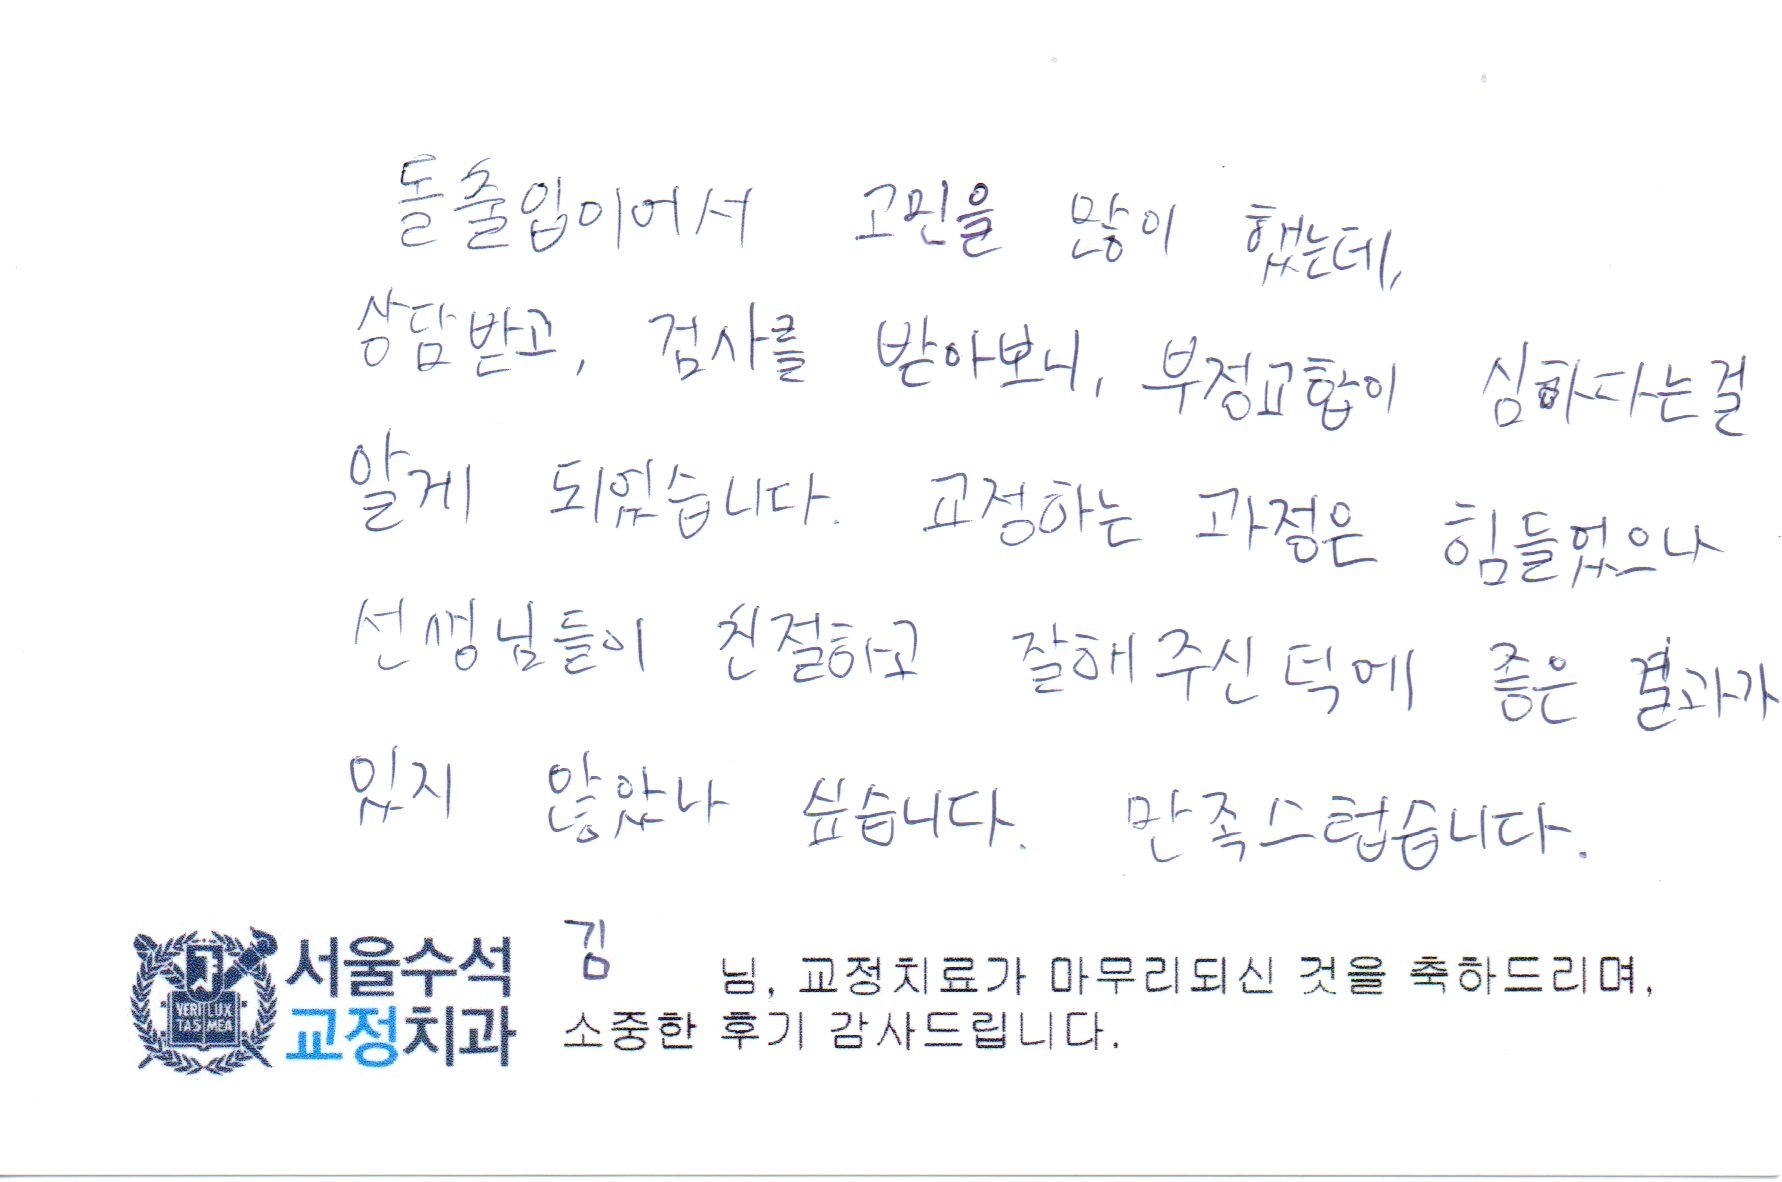 돌출입이어서 고민을 많이 했는데,
상담받고, 검사를 받아보니, 부정교합이 심하다는걸
알게 되었습니다. 교정하는 과정은 힘들었으나
선생님들이 친절하고 잘해주신 덕에 좋은 결과가
있지 않았나 싶습니다. 만족스럽습니다.
김 님, 교정치료가 마무리되신 것을 축하드리며,
소중한 후기 감사드립니다.
서울수석
교정치과
VERI LUX
TAS MEA